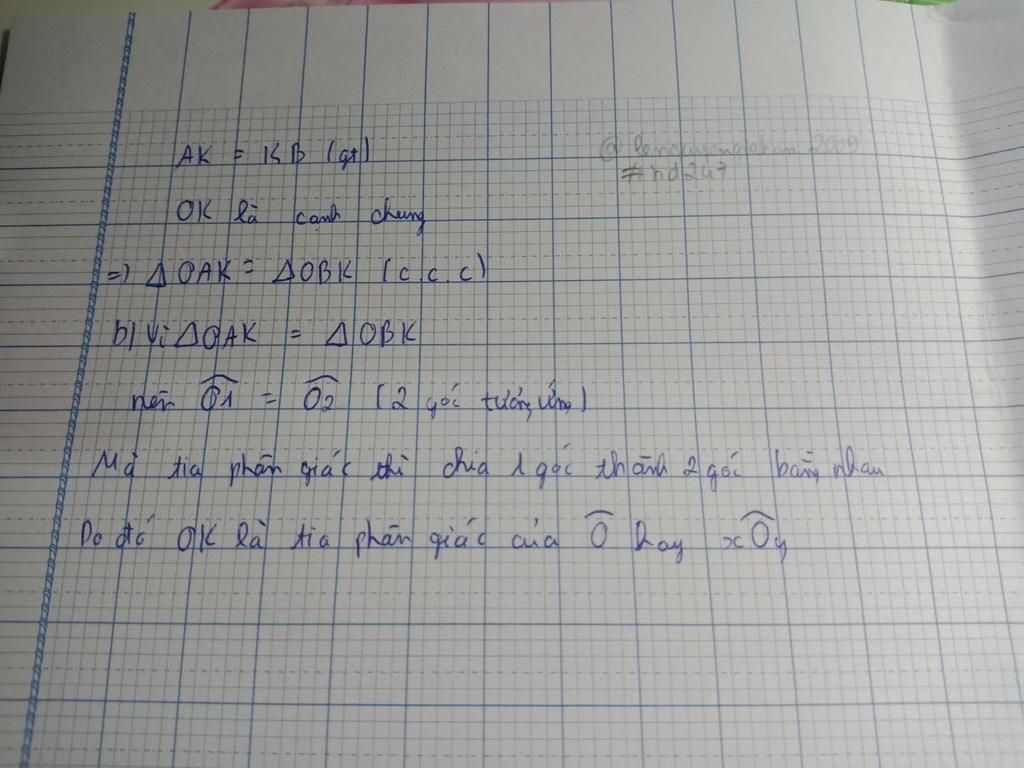 AK = KB (gt)
#nd247
OK là cạnh chung
=) ΔOAK = ΔOBK (c.c.c)
b) Vì ΔOAK = ΔOBK
nên Ô1 = Ô2 (2 góc tương ứng)
Mà tia phân giác thì chia 1 góc thành 2 góc bằng nhau
Do đó OK là tia phân giác của Ô hay xÔy